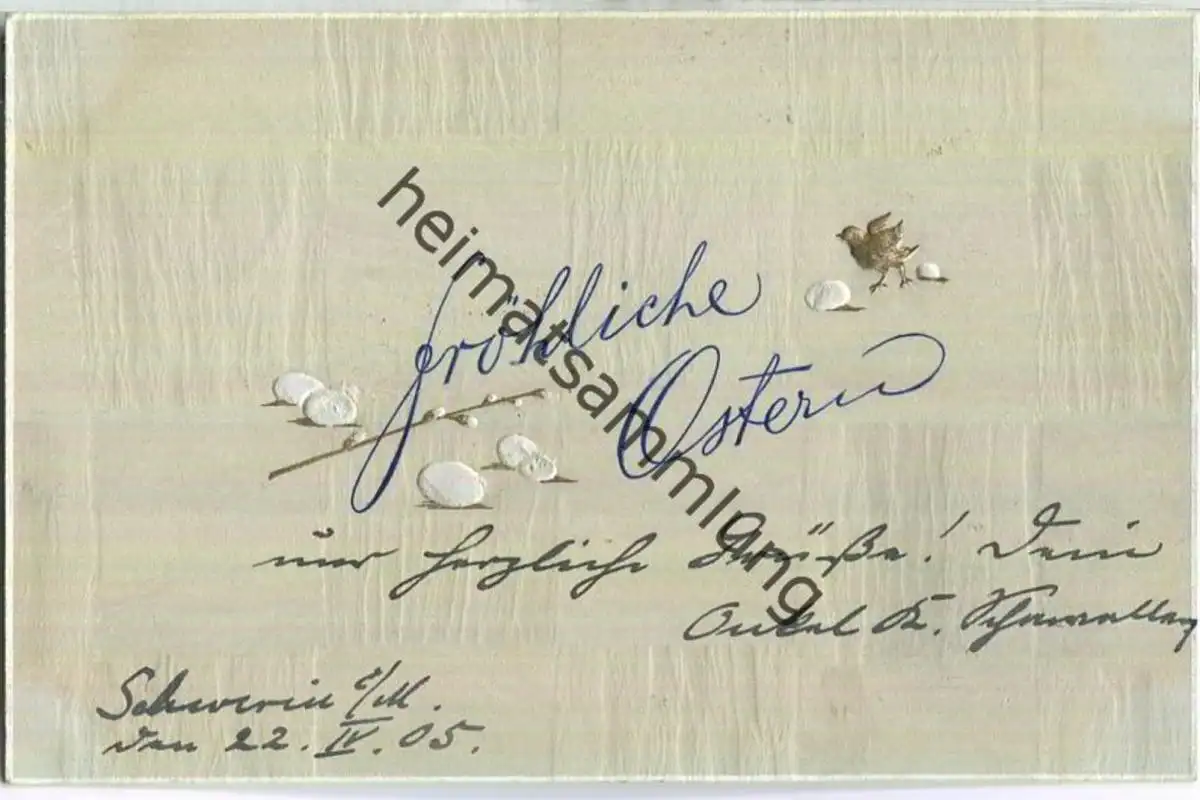 fröhliche
Ostern
heimatsammlung
und herzliche Grüße! Dein
Onkel K.
Schwerin i/M.
den 22. IV. 05.